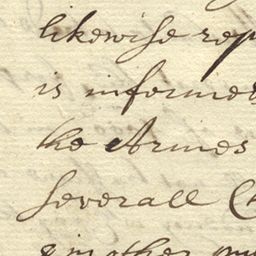 likewise rep
is informed
the Armes
severall C
& in other